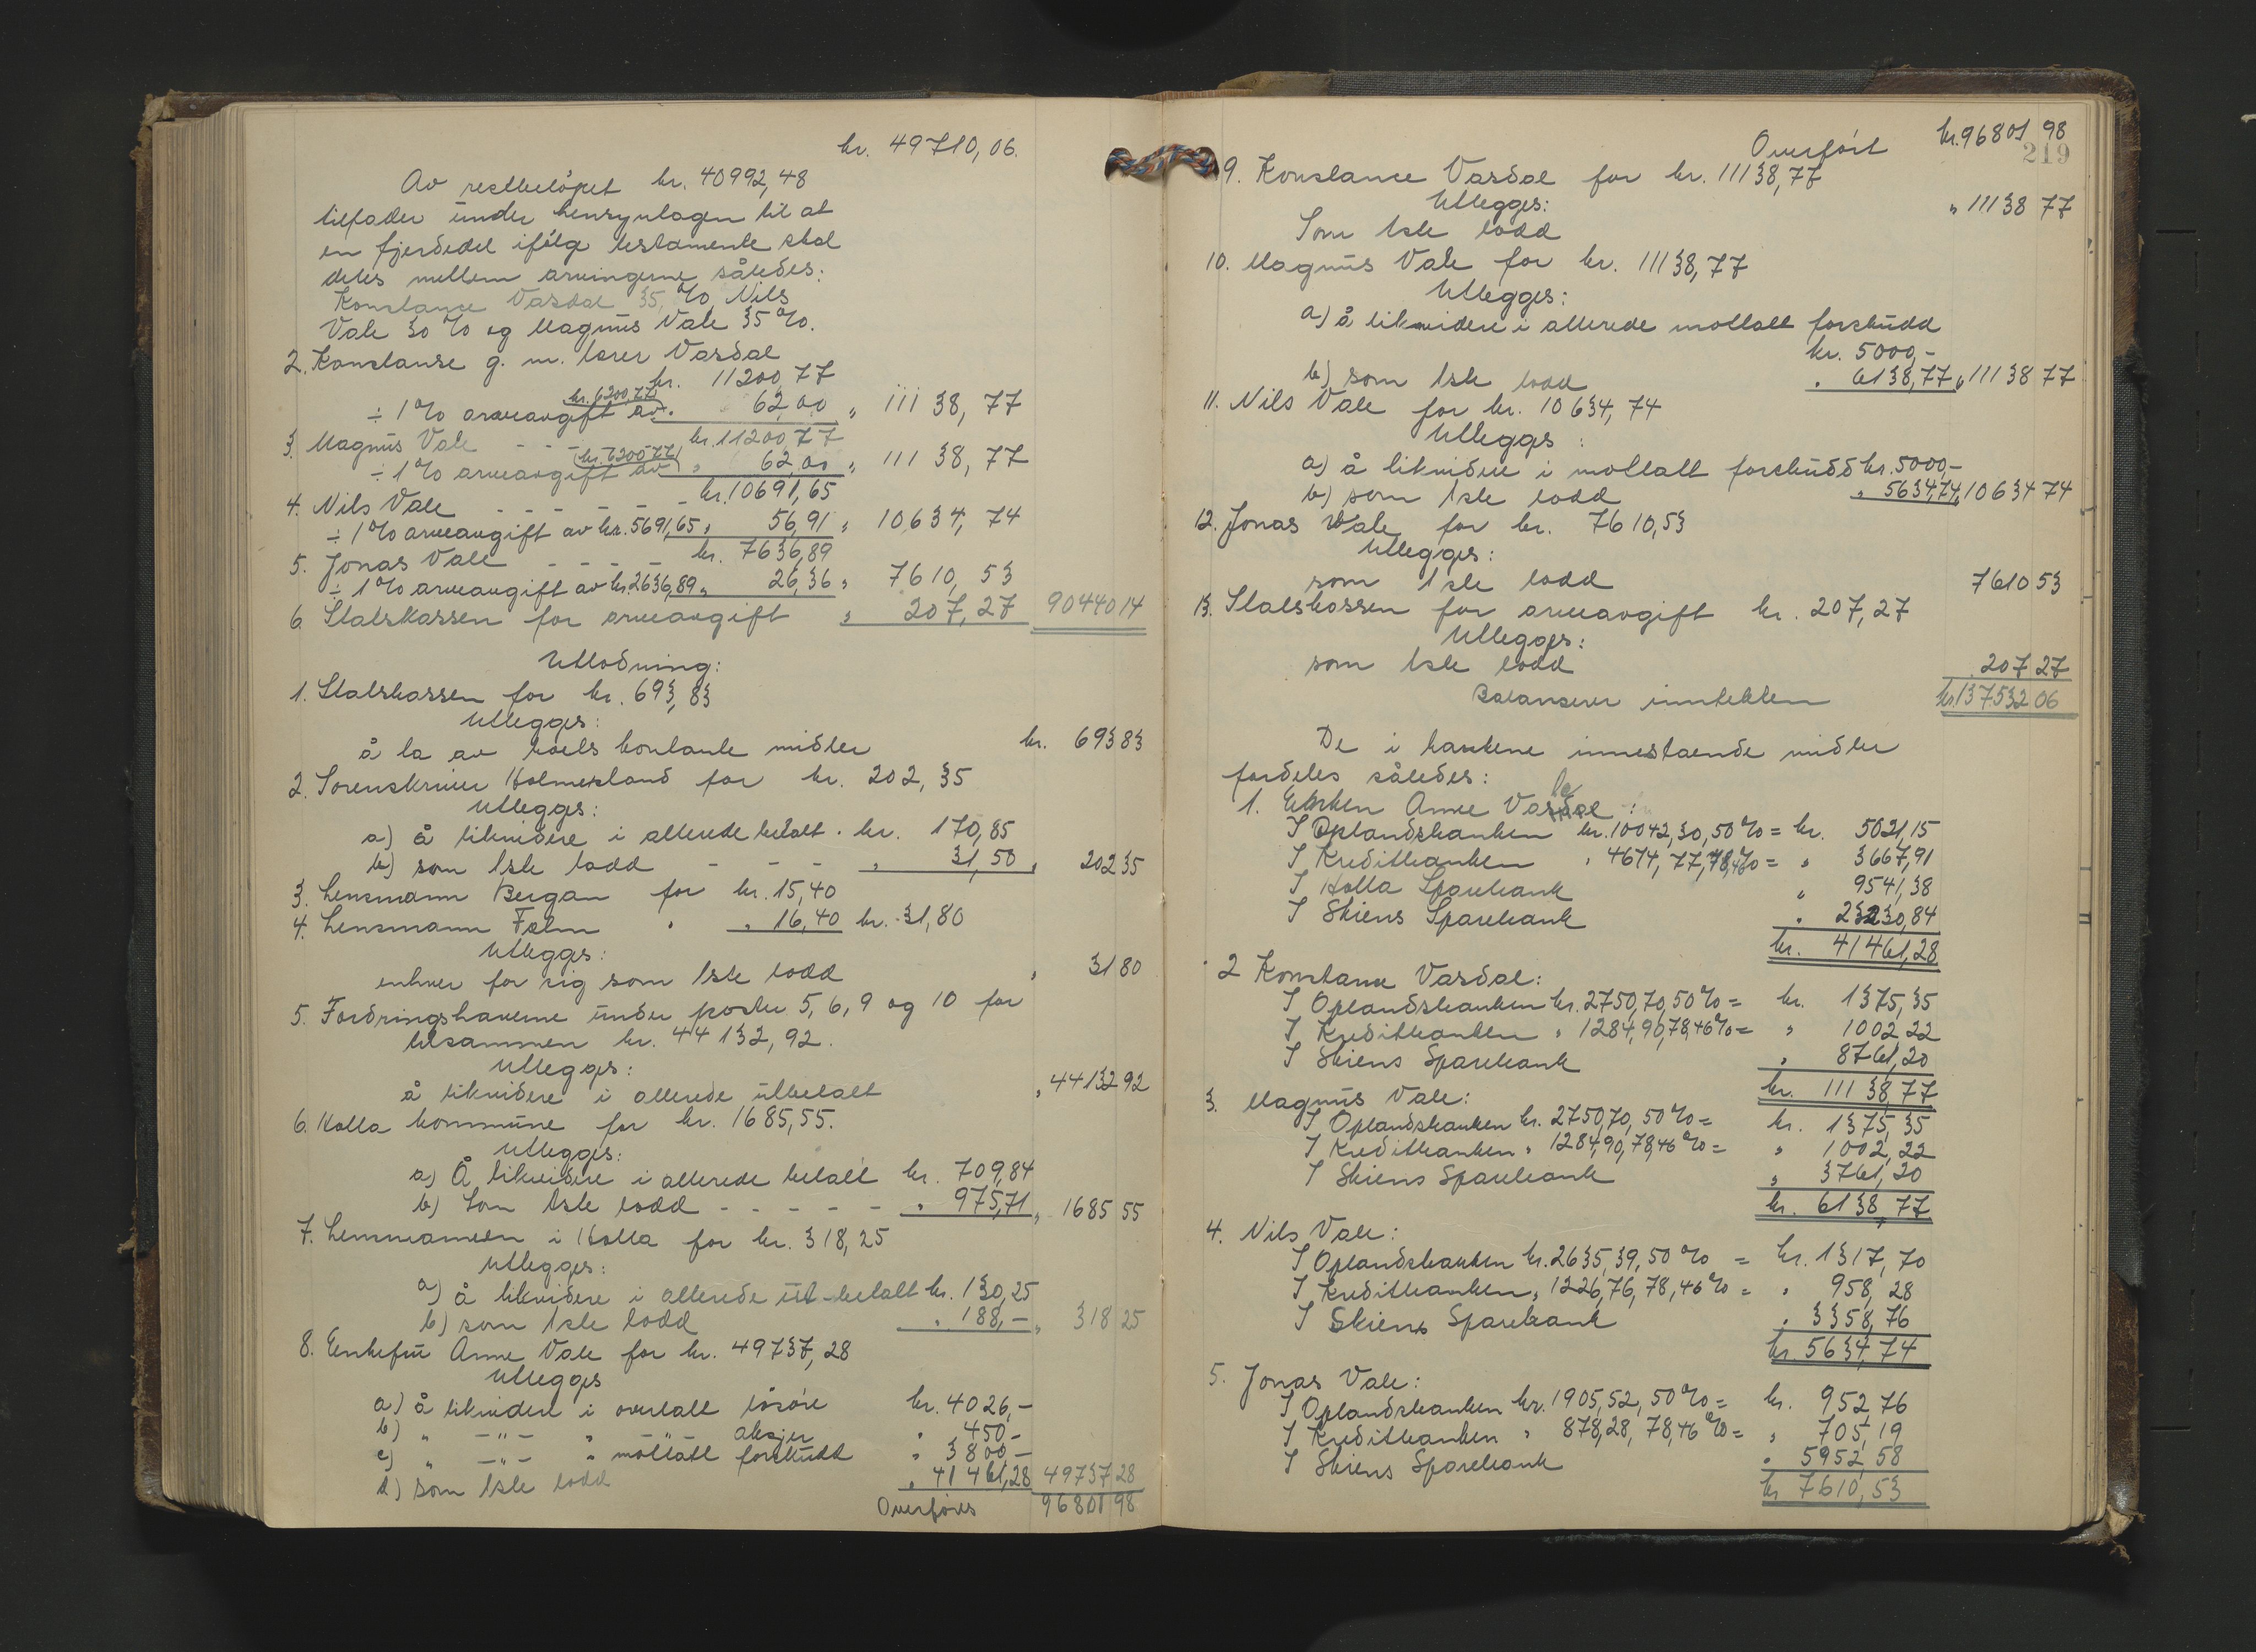 kr. 49710,06.
Av restbelöpet kr. 40992,48
tilfaller under hensyntagen til at
en fjerdedel ifölge testamente skal
deles mellem arvingerne således:
Konstance Vasdal 35 %, Nils
Vale 30 % og Magnus Vale 35 %.
2. Konstanse g. m. lærer Vasdal
kr. 11200,77
÷ 1% arveavgift av kr. 6200,77 . 62,00 " 11138,77
3. Magnus Vale - - - kr. 11200,77
÷ 1% arveavgift av (kr. 6200,77) " 62,00 " 11138,77
4. Nils Vale - - - - - - kr. 10691,65
÷ 1% arveavgift av kr. 5691,65 " 56,91 " 10634,74
5. Jonas Vale - - - - kr. 7636,89
÷ 1% arveavgift av kr. 2636,89 " 26,36 " 7610,53
6. Statskassen for arveavgift " 207,27 90440 14
Utlodning:
1. Statskassen for kr. 693,83
Utlegges:
å ta av boets kontante midler kr. 693 83
2. Sorenskriver Holmesland for kr. 202,35
Utlegges:
a) å likvidere i allerede betalt . kr. 170,85
b) som 1ste lodd - - - " 31,50 " 202 35
3. Lensmann Bergan for kr. 15,40
4. Lensmann " " 16,40 kr. 31,80
Utlegges:
enhver for sig som 1ste lodd " 31 80
5. Fordringshaverne under poster 5, 6, 9 og 10 for
tilsammen kr. 44132,92.
Utlegges:
å likvidere i allerede utbetalt " 44132 92
6. Holla kommune for kr. 1685,55.
Utlegges:
a) Å likvidere i allerede betalt kr. 709,84
b) Som 1ste lodd - - - - - " 975,71 " 1685 55
7. Lensmannen i Holla for kr. 318,25
Utlegges:
a) å likvidere i allerede utbetalt kr. 130,25
b) som 1ste lodd " 188,- " 318 25
8. Enkefru Anne Vale for kr. 49737,28
Utlegges
a) å likvidere i overtatt lösöre kr. 4026,-
b) " -"- " -"- aksjer " 450,-
c) " -"- " mottatt forskudd " 3800,-
d) som 1ste lodd " 41461,28 49737 28
Overföres 96801 98
Overfört kr. 96801 98
219
9. Konstance Vasdal for kr. 11138,77
Utlegges:
Som 1ste lodd " 11138 77
10. Magnus Vale for kr. 11138,77
Utlegges:
a) å likvidere i allerede mottatt forskudd
kr. 5000,-
b) som 1ste lodd " 6138,77 " 11138 77
11. Nils Vale for kr. 10634,74
Utlegges:
a) å likvidere i mottatt forskudd kr. 5000,-
b) som 1ste lodd " 5634,74 " 10634 74
12. Jonas Vale for kr. 7610,53
Utlegges:
som 1ste lodd 7610 53
13. Statskassen for arveavgift kr. 207,27
Utlegges:
som 1ste lodd 207 27
Balanserer inntekten kr. 137532 06
De i bankene innestaende midler
fordeles således:
1. Enken Anne Vale:
I Oplandsbanken kr. 10042,30, 50% = kr. 5021,15
I Kreditbanken " 4674,77, 78,46% = " 3667,91
I Holla Sparebank " 9541,38
I Skiens Sparebank " 23230,84
kr. 41461,28
2 Konstance Vasdal:
I Oplandsbanken kr. 2750,70, 50% = kr. 1375,35
I Kreditbanken " 1284,90, 78,46% = " 1002,22
I Skiens Sparebank " 8761,20
kr. 11138,77
3. Magnus Vale:
I Oplandsbanken kr. 2750,70, 50% = kr. 1375,35
I Kreditbanken " 1284,90, 78,46% = " 1002,22
I Skiens Sparebank " 3761,20
kr. 6138,77
4. Nils Vale:
I Oplandsbanken kr. 2635,39, 50% = kr. 1317,70
I Kreditbanken " 1226,76, 78,46% = " 958,28
I Skiens Sparebank " 3358,76
kr. 5634,74
5. Jonas Vale:
I Oplandsbanken kr. 1905,52, 50% = kr. 952,76
I Kreditbanken " 878,28, 78,46% = " 705,19
I Skiens Sparebank " 5952,58
kr 7610,53